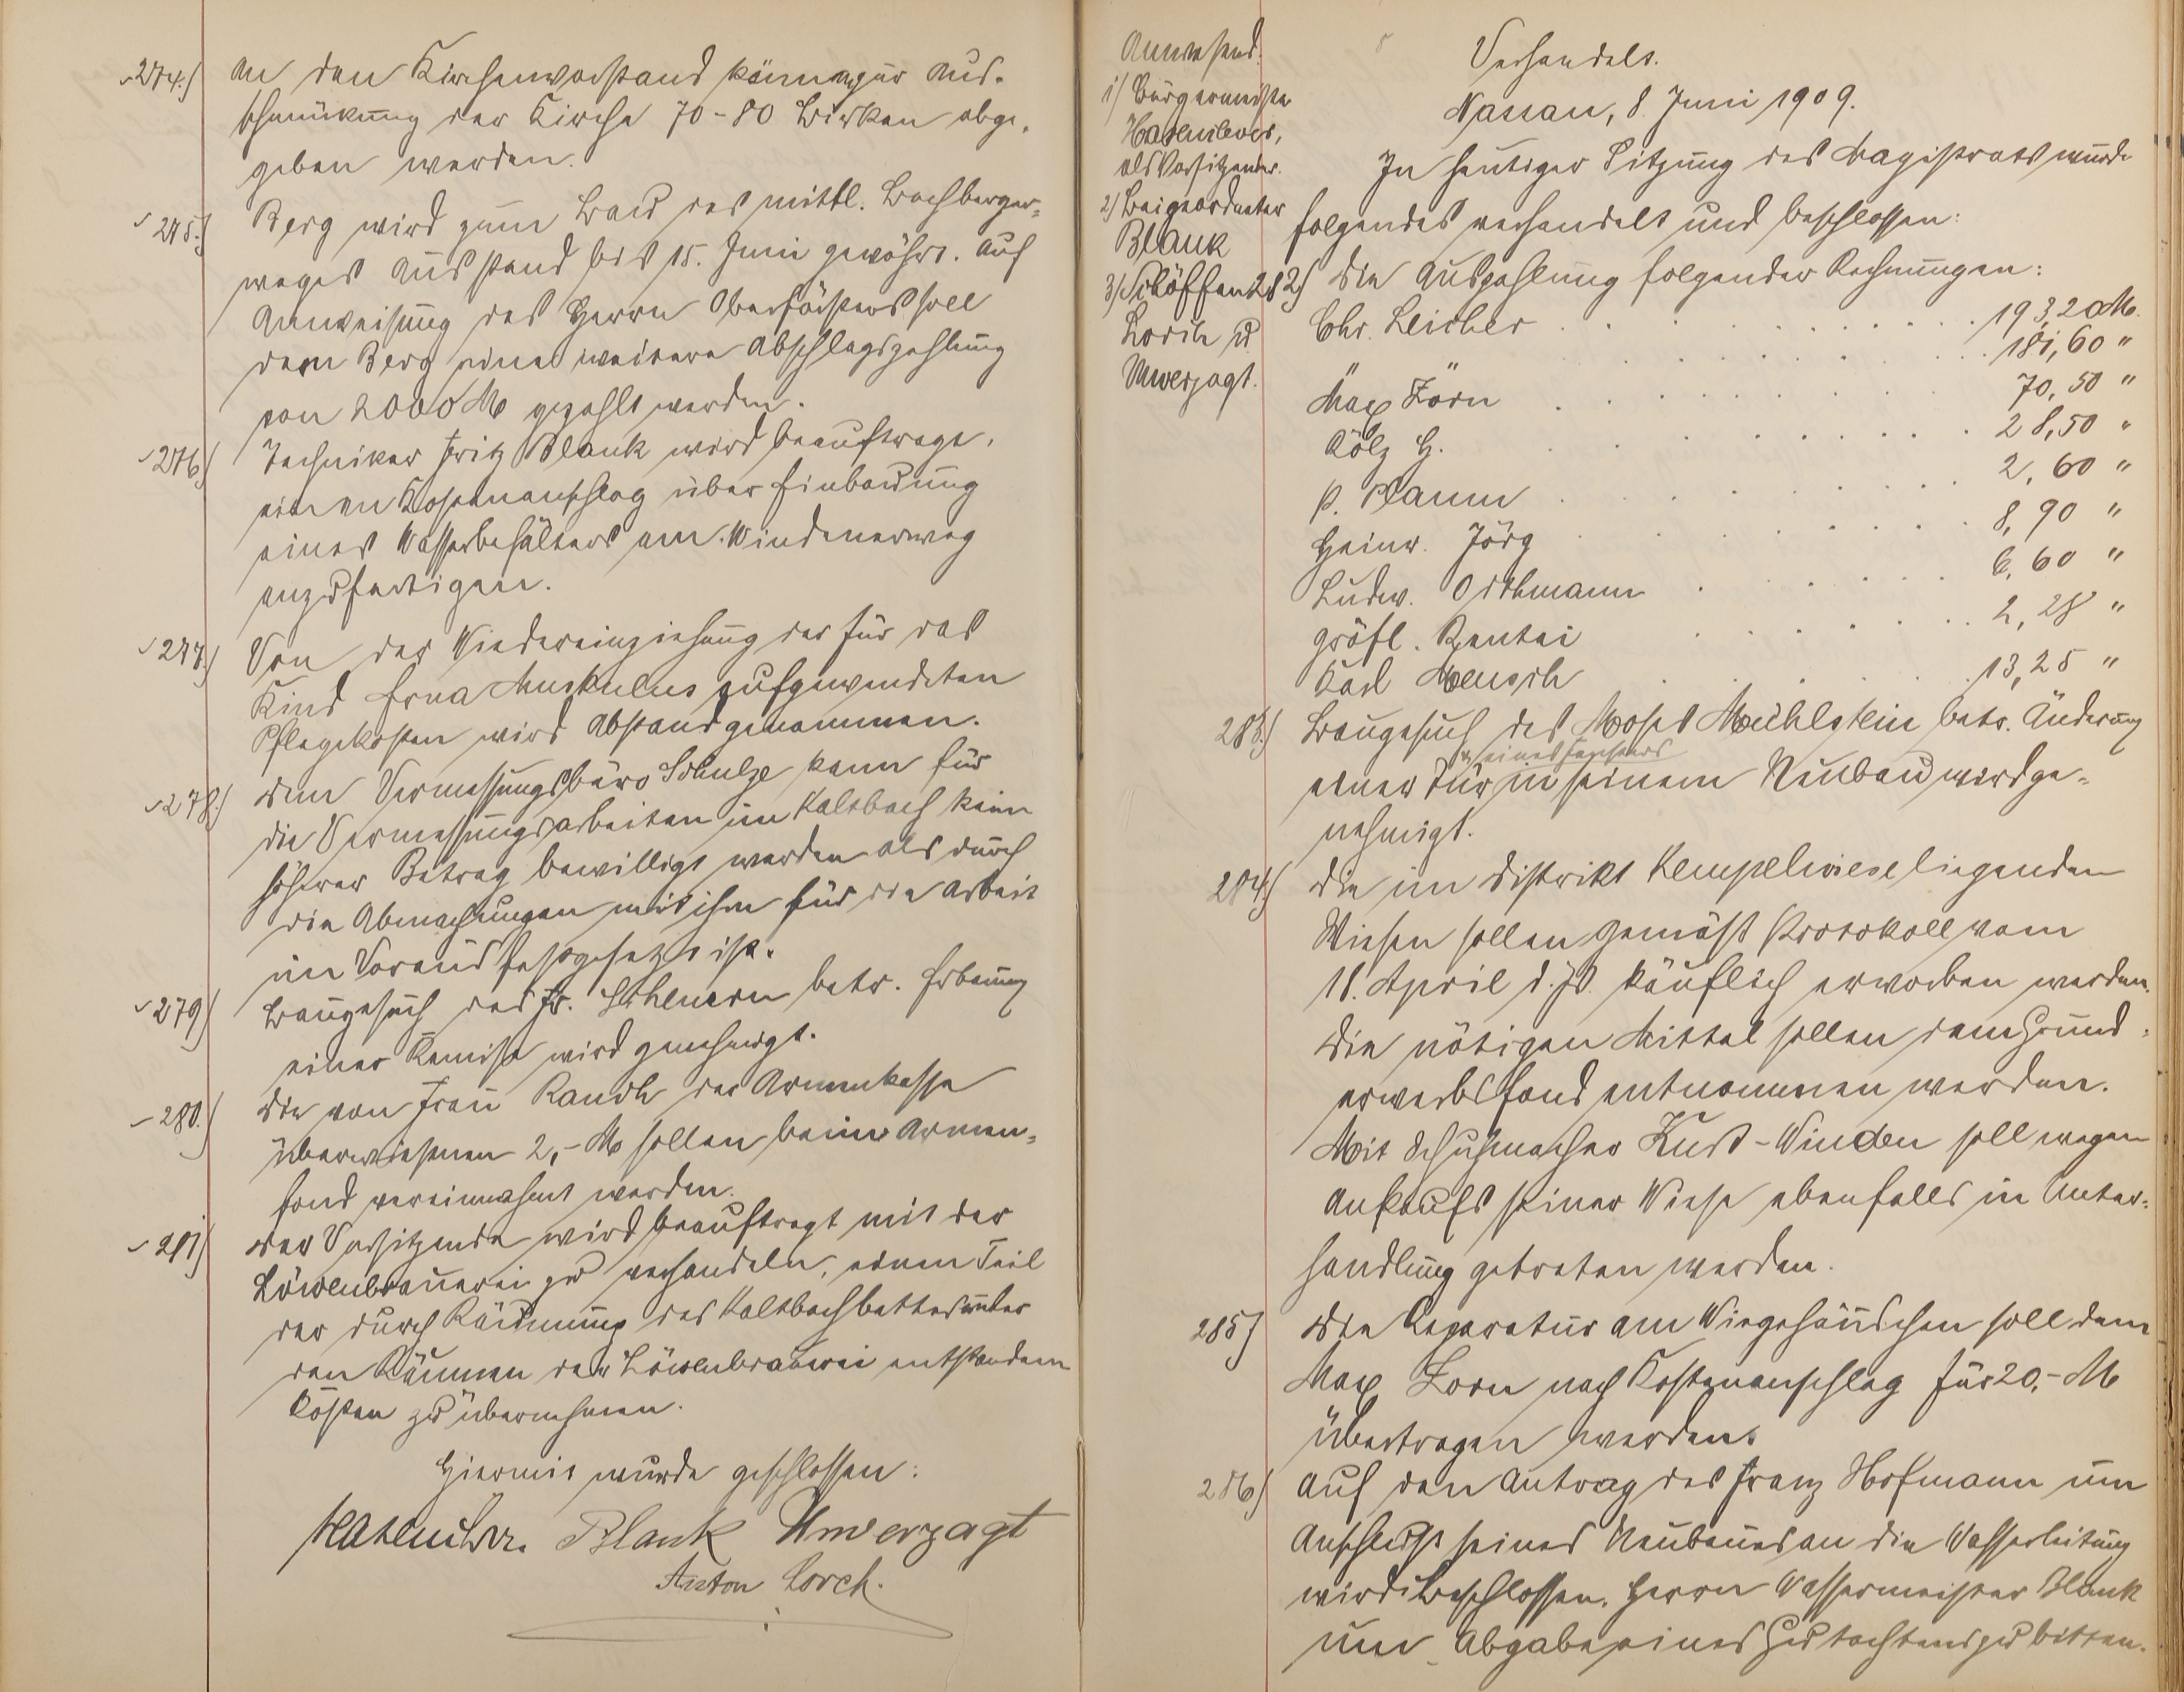 274.) An den Kirchenvorstand können zur Aus-
schmückung der Kirche 70-80 Birken abge-
geben werden.
275.) Berg wird zum Bau des mittl. Bachberger-
weges Ausstand bis 15. Juni gewährt. Auf
Anweisung des Herrn Oberförsters soll
dem Berg eine weitere Abschlagszahlung
von 2000 M gezahlt werden.
276) Techniker Fritz Blank wird beauftragt,
einen Kostenanschlag über Einbauung
eines Wasserbehälters am Windenerweg
anzufertigen.
277.) Von der Wiedereinziehung der für das
Kind Erna Muskulus aufgewendeten
Pflegekosten wird Abstand genommen.
278.) Dem Vermessungsbüro Schulze kann für
die Vermessungsarbeiten im Kaltbach kein
höherer Betrag bewilligt werden als durch
die Abmachungen mit ihm für die Arbeit
im Voraus festgesetzt ist.
279) Baugesuch des Fr. Scheuern betr. Erbauung
einer Remise wird genehmigt.
280.) Die von Frau Rauch der Armenkasse
überwiesenen 2,- M sollen beim Armen-
fond vereinnahmt werden.
281) Der Vorsitzende wird beauftragt mit der
Löwenbrauerei zu verhandeln, einen Teil
der durch Räumung des Kaltbachbettes unter
den Räumen der Löwenbrauerei entstandenen
Kosten zu übernehmen.
Hiermit wurde geschlossen:
Hasenclever. Blank Unverzagt
Anton Lorch.
Anwesend:
1) Bürgermeister
Hasenclever,
als Vorsitzender.
2) Beigeordneter
Blank
3) Schöffen
Lorch u
Unverzagt.
Verhandelt.
Nassau, 8. Juni 1909.
In heutiger Sitzung des Magistrats wurde
folgendes verhandelt und beschlossen:
282) Die Auszahlung folgender Rechnungen:
Chr. Leicher . . . 193,20 M.
" . . . 181,60 "
Max Zorn . . . 70,50 "
Kölz H. . . . 28,50 "
P. Plaum . . . 2,60 "
Heinr. Jörg . . . 8,90 "
Ludw. Orthmann . . . 6,60 "
gräfl. Rentei . . . 2,28 "
Karl Mensch . . . 13,25 "
283.) Baugesuch des Moses Mühlstein betr. Änderung
u. eines Fensters
einer Tür in seinem Neubau wird ge-
nehmigt.
284.) Die im Distrikt Kempelwiese liegenden
Wiesen sollen gemäß Protokoll vom
11. April d. Js. käuflich erworben werden.
Die nötigen Mittel sollen dem Grund-
erwerbsfond entnommen werden.
Mit Schuhmacher Kurt-Winden soll wegen
Ankaufs seiner Wiese ebenfalls in Unter-
handlung getreten werden.
285) Die Reparatur am Wiegehäuschen soll dem
Max Zorn nach Kostenanschlag für 20,- M
übertragen werden.
286) Auf den Antrag des Franz Hofmann um
Anschluß seines Neubaues an die Wasserleitung
wird beschlossen, Herrn Wassermeister Blank
um Abgabe eines Gutachtens zu bitten.